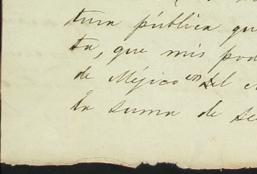 tura pública qu
ta, que mis pod
de Méjico en el
La suma de se